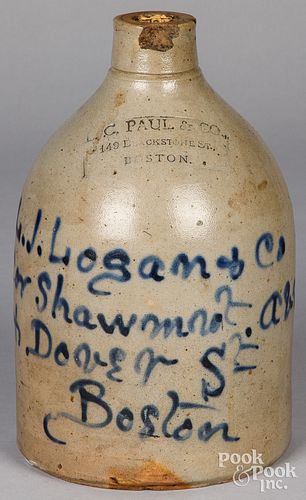 C. PAUL & CO.,
149 BLACKSTONE ST.
BOSTON.
J. Logan & Co
Shawmut. av
Dover St
Boston
POOK
& POOK INC.